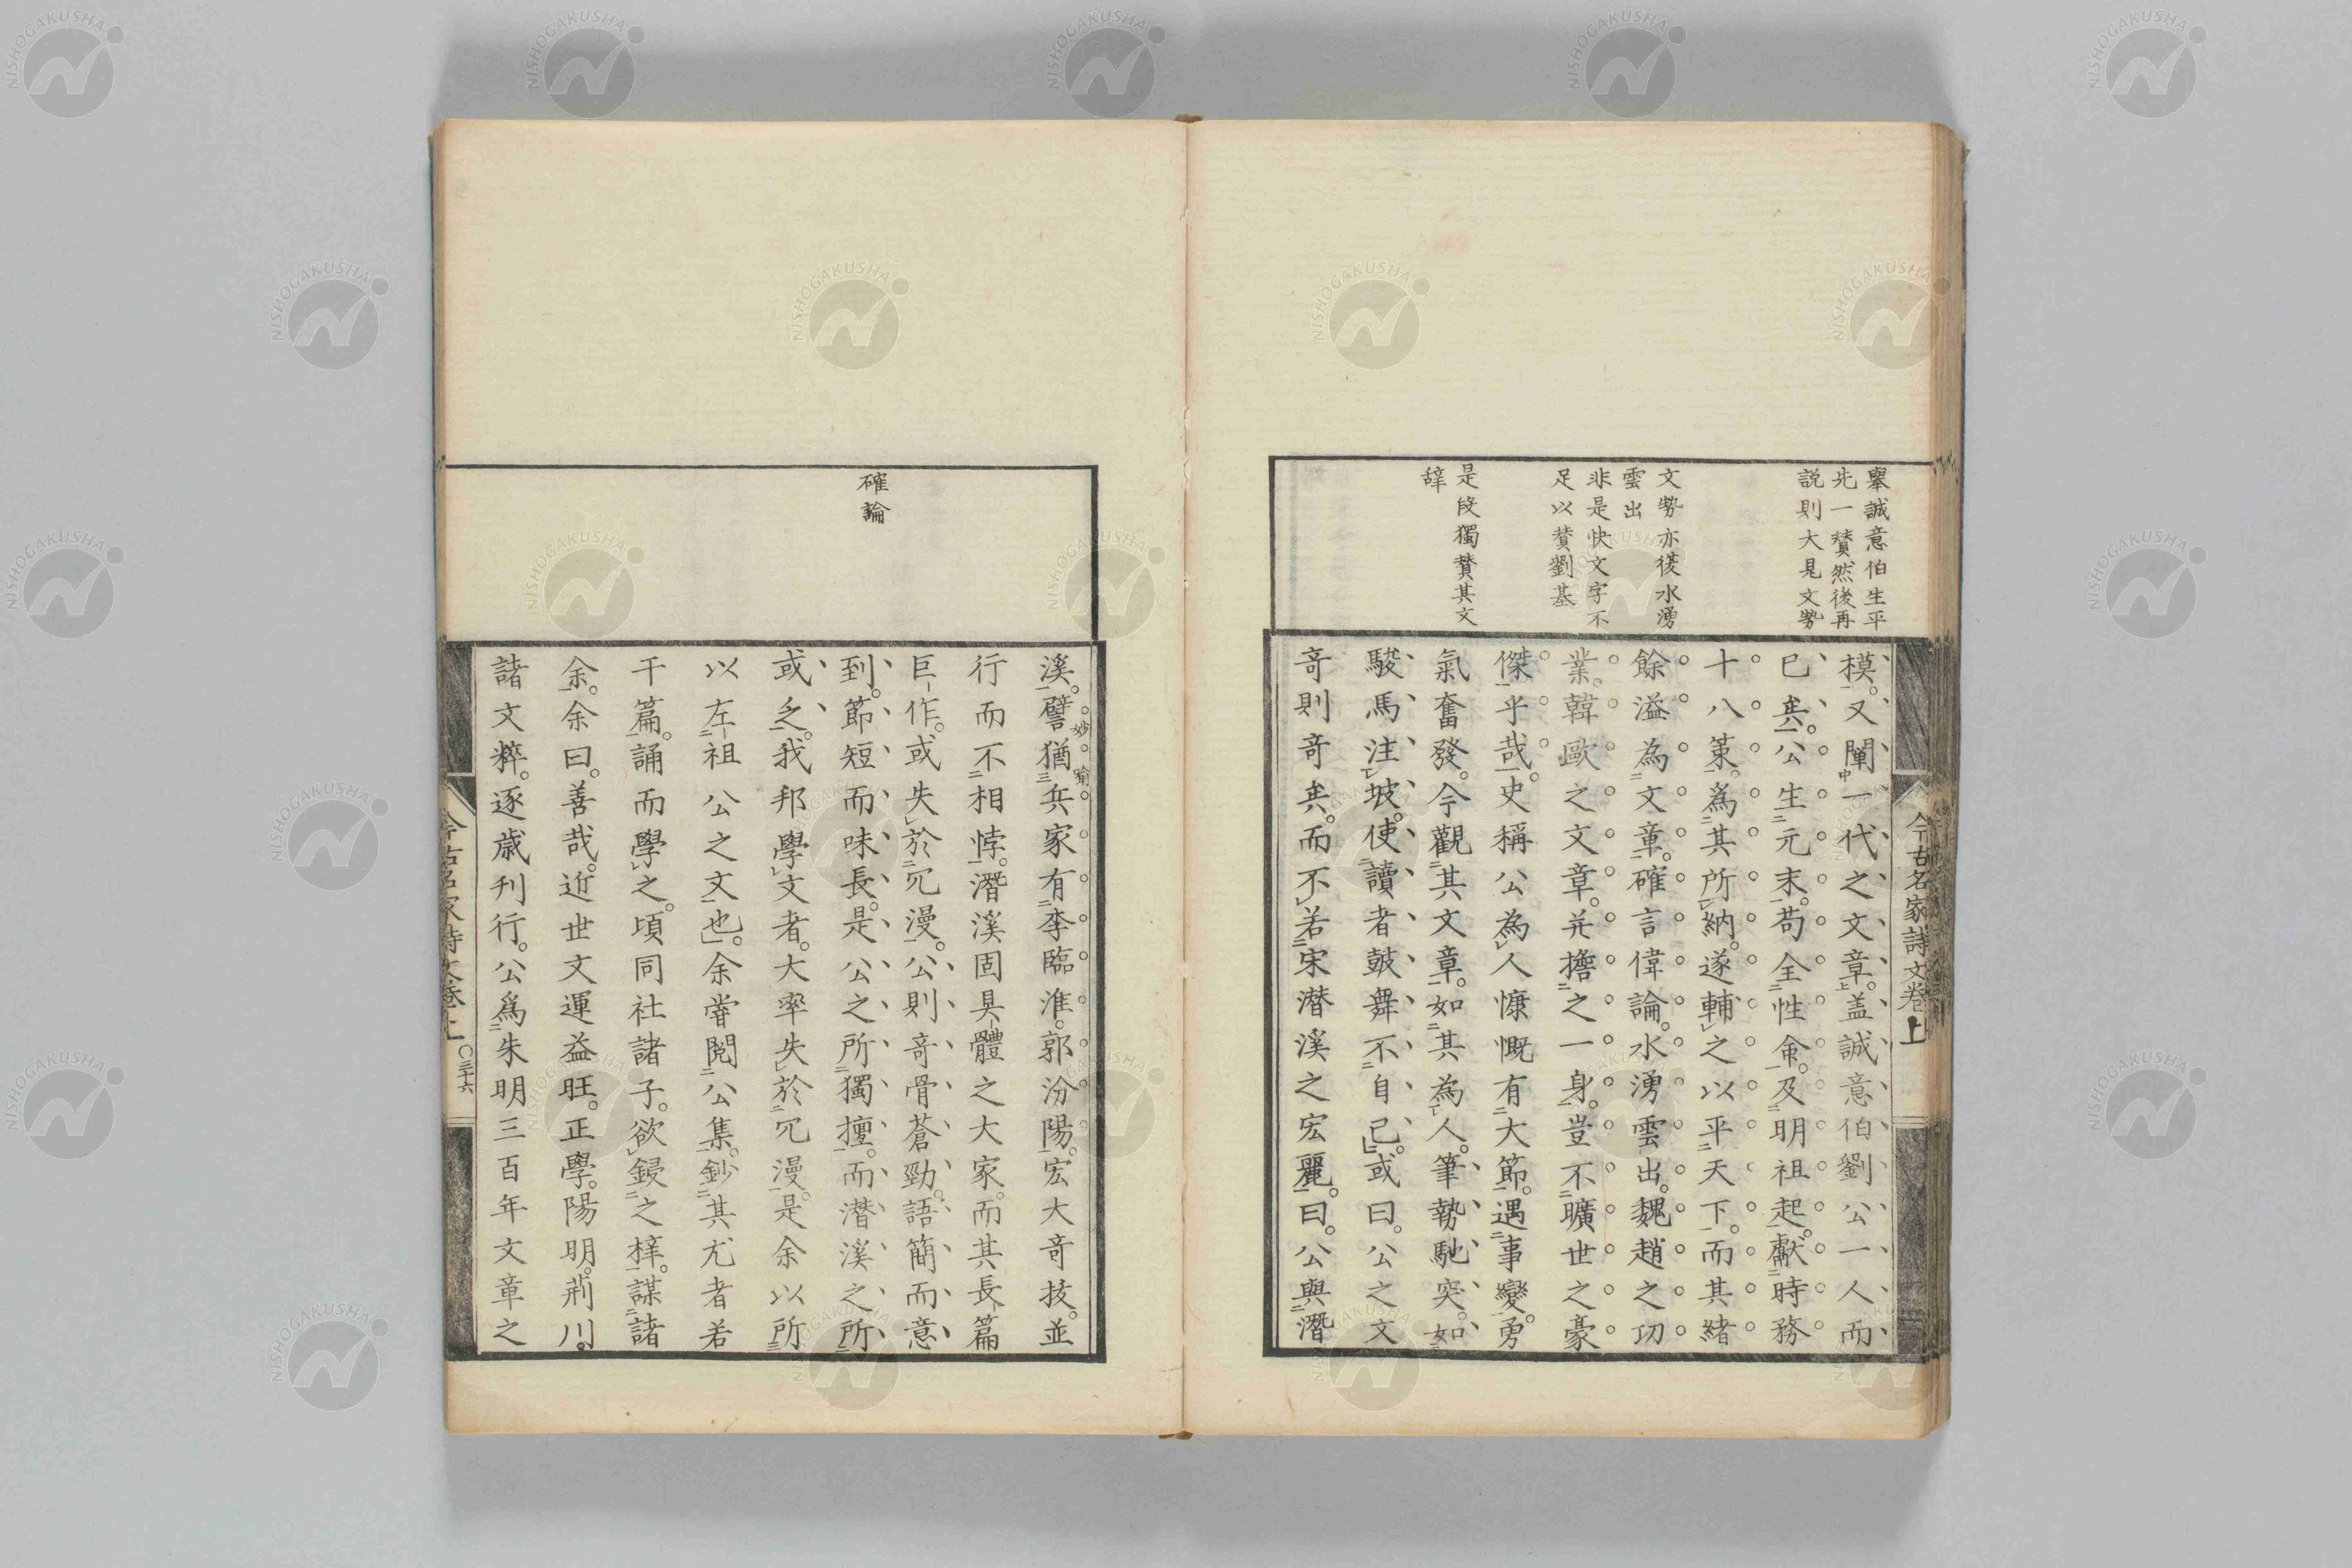 今古名家詩文卷上
舉誠意伯生平
先一贊然後再
説則大見文勢
文勢亦從水湧
雲出
非是快文字不
足以贊劉基
是段獨贊其文
辭
模。又闡一代之文章。盖誠意伯劉公一人而
已矣。公生元末。苟全性命。及明祖起。獻時務
十八策。爲其所納。遂輔之以平天下。而其緒
餘溢為文章。確言偉論。水湧雲出。魏趙之功
業。韓歐之文章。并擔之一身。豈不曠世之豪
傑乎哉。史稱公為人慷慨有大節。遇事變。勇
氣奮發。今觀其文章。如其為人。筆勢馳突。如
駿馬注坡。使讀者鼓舞不自已。或曰。公之文
奇則奇矣。而不若宋潜溪之宏麗。曰。公與潛
確論
溪。譬猶兵家有李臨淮。郭汾陽。宏大奇技。並
妙喻
行而不相悖。潛溪固具體之大家。而其長篇
巨作。或失於冗漫。公則奇骨蒼勁。語簡而意
到。節短而味長。是公之所獨擅。而潜溪之所
或乏。我邦學文者。大率失於冗漫。是余以所
以左祖公之文也。余甞閲公集。鈔其尤者若
干篇。誦而學之。頃同社諸子。欲鋟之梓。謀諸
余。余曰。善哉。近世文運益旺。正學。陽明。荊川。
諸文粹。逐歳刊行。公爲朱明三百年文章之
今古名家詩文卷上
〇三十六